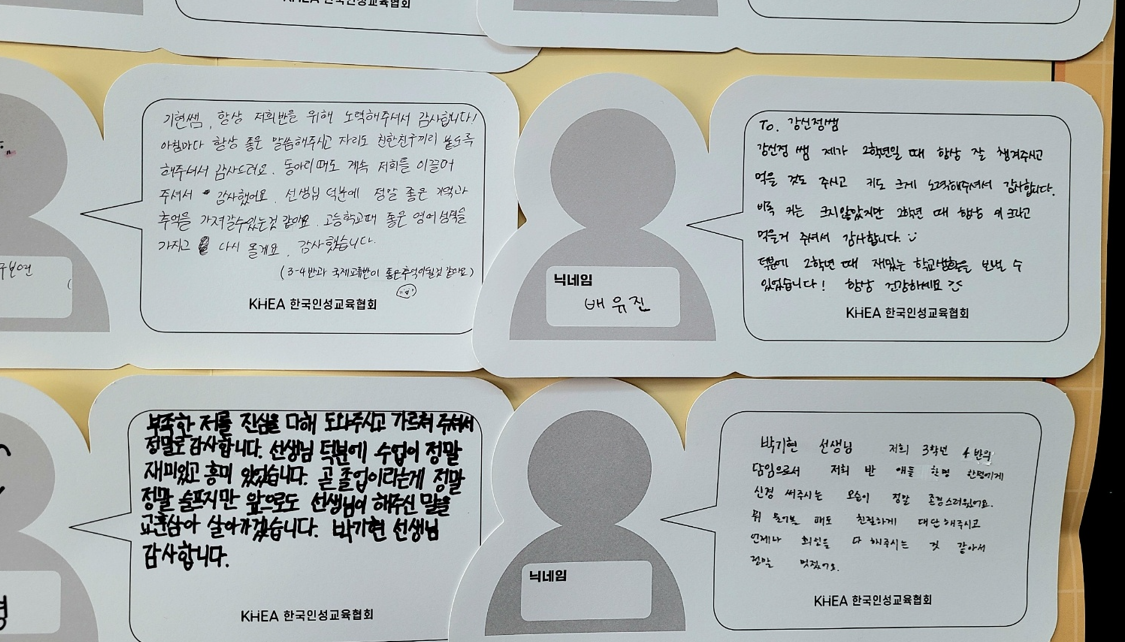 KHEA 한국인성교육협회
기현쌤, 항상 저희반을 위해 노력해주셔서 감사합니다!
아침마다 항상 좋은 말씀해주시고 자리도 친한친구끼리 앉도록
해주셔서 감사드려요. 동아리때도 계속 저희를 이끌어
주셔서 감사했어요. 선생님 덕분에 정말 좋은 기억과
추억을 가져갈수있는것 같아요. 고등학교때 좋은 영어성적을
가지고 다시 올게요. 감사했습니다.
(3-4반과 국제교류반이 좋은추억이될것 같아요)
KHEA 한국인성교육협회
구보연
To. 강선정쌤
강선정 쌤 제가 2학년일 때 항상 잘 챙겨주시고
먹을 것도 주시고 키도 크게 노력해주셔서 감사합니다.
비록 키는 크지않았지만 2학년 때 항상 키 크라고
먹을거 주셔서 감사합니다.
덕분에 2학년 때 재밌는 학교생활을 보낼 수
있었습니다! 항상 건강하세요
KHEA 한국인성교육협회
닉네임
배유진
부족한 저를 진심을 다해 도와주시고 가르쳐 주셔서
정말로 감사합니다. 선생님 덕분에 수업이 정말
재미있고 흥미 있었습니다. 곧 졸업이라는게 정말
정말 슬프지만 앞으로도 선생님이 해주신 말을
교훈삼아 살아가겠습니다. 박기현 선생님
감사합니다.
KHEA 한국인성교육협회
박기현 선생님 저희 3학년 4반의
담임으로서 저희 반 애들 한명 한명에게
신경 써주시는 모습이 정말 존경스러웠어요.
뭐 물어볼 때도 친절하게 대답해주시고
언제나 최선을 다 해주시는 것 같아서
정말 멋졌어요.
KHEA 한국인성교육협회
닉네임